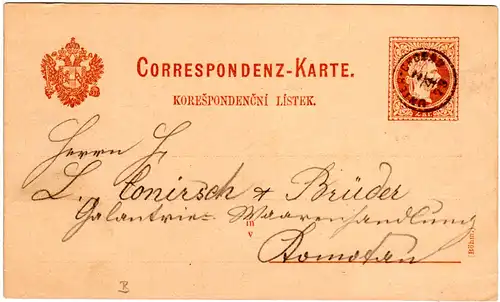 CORRESPONDENZ-KARTE.
KOREŠPONDENČNÍ LÍSTEK.
Herrn F.
L. Conirsch & Brüder
Galantrie-Waarenhandlung
in
v
Komotau
(Böhm.)
B